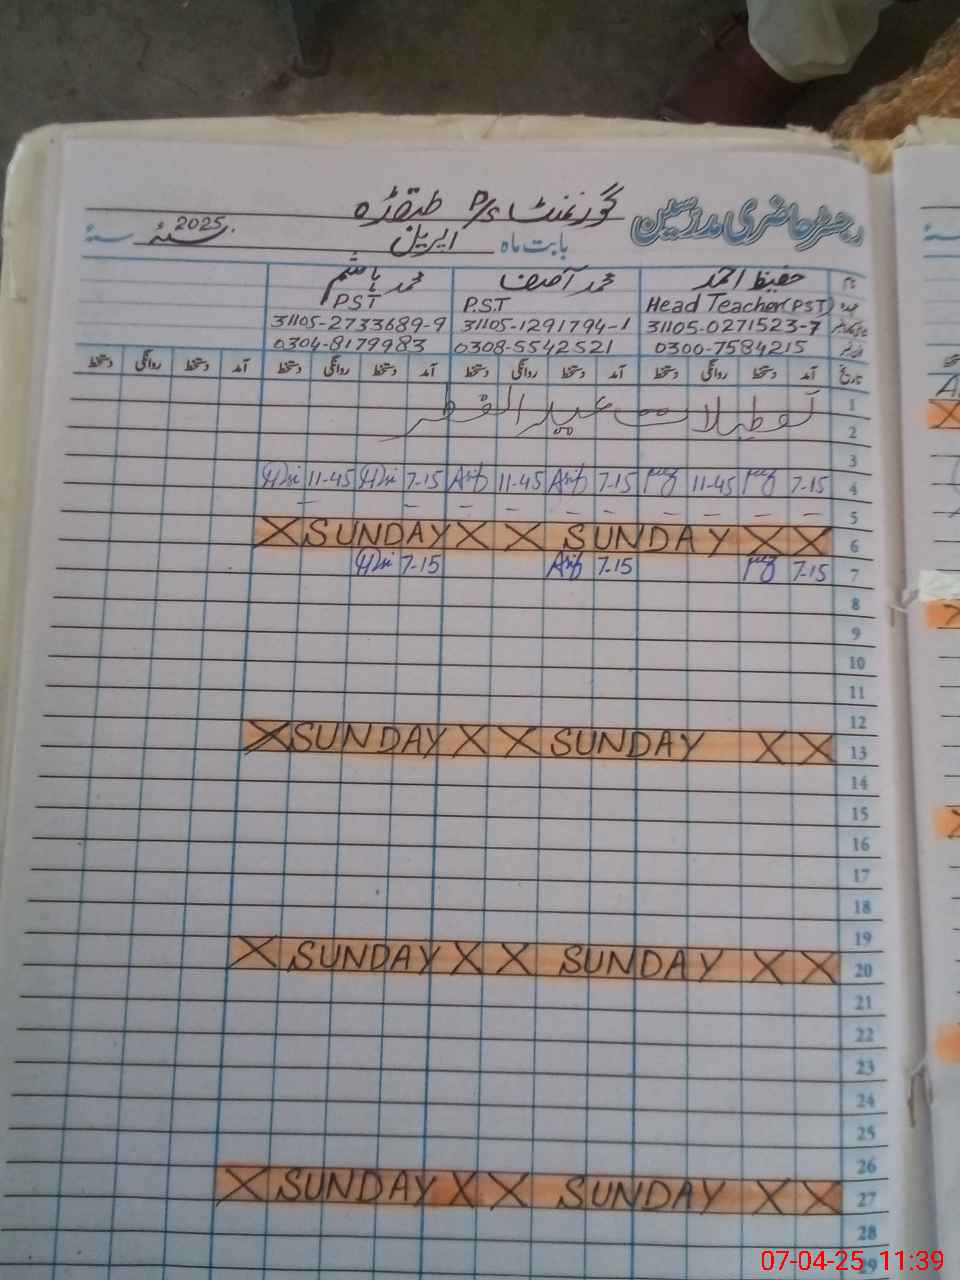 رجسٹر حاضری مدرسین گورنمنٹ P/S
بابت ماہ اپریل 2025ء سنہ
نام حفیظ احمد محمد آصف محمد ہاشم
عہدہ Head Teacher(PST) P.S.T PST
31105-0271523-7 31105-1291794-1 31105-2733689-9
0300-7584215 0308-5542521 0304-8179983
تاریخ آمد دستخط روانگی دستخط آمد دستخط روانگی دستخط آمد دستخط روانگی دستخط آمد دستخط روانگی دستخط
1 تعطیلات عیدالفطر
2
3
4 7-15 11-45 7-15 Arif 11-45 Arif 7-15 11-45
5 - - - - - - - - - -
6 X X SUNDAY X X SUNDAY X
7 7-15 7-15 Arif 7-15
8
9
10
11
12
13 X X SUNDAY X X SUNDAY X
14
15
16
17
18
19
20 X X SUNDAY X X SUNDAY X
21
22
23
24
25
26
27 X X SUNDAY X X SUNDAY X
28
29
07-04-25 11:39